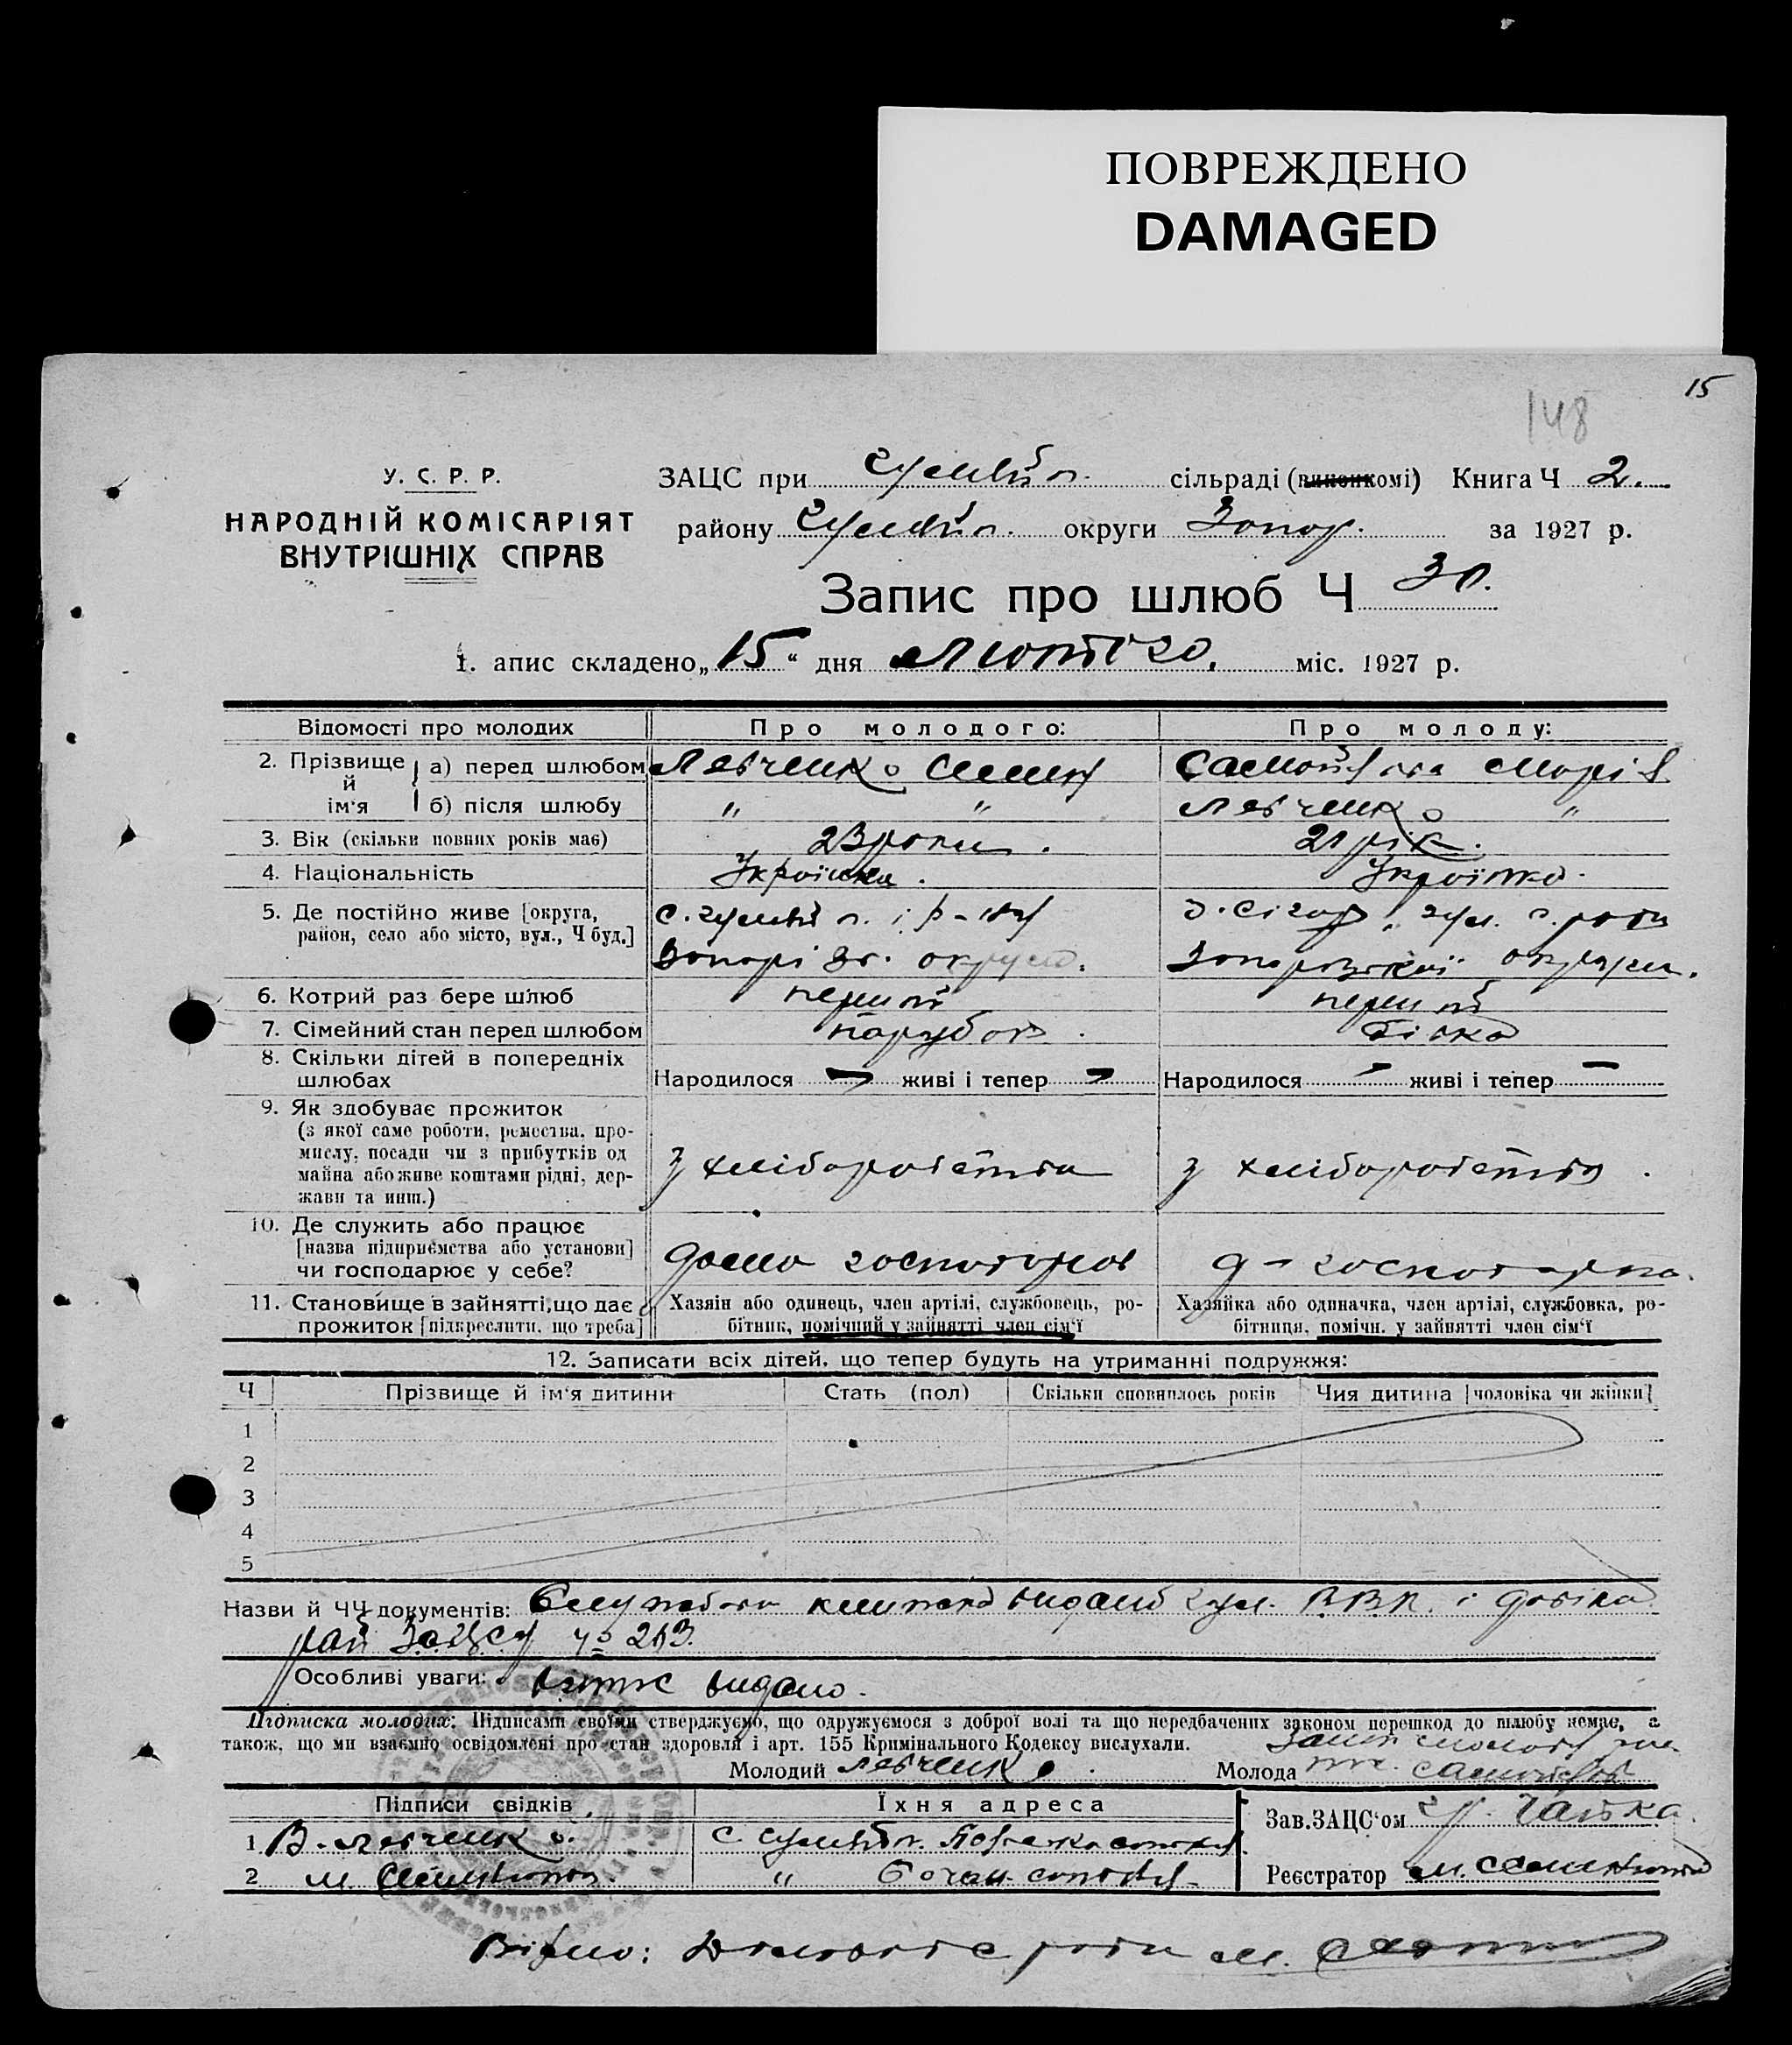 ПОВРЕЖДЕНО
DAMAGED
15
148
У. С. Р. Р.
НАРОДНІЙ КОМІСАРІЯТ
ВНУТРІШНІХ СПРАВ
ЗАЦС при сільраді (виконкомі) Книга Ч 2.
району округи Запор. за 1927 р.
Запис про шлюб Ч 30.
1. апис складено „15“ дня Лютого міс. 1927 р.
Відомості про молодих Про молодого: Про молоду:
2. Прізвище й ім'я а) перед шлюбом Левченко Семен Самойлова Марія
б) після шлюбу " " Левченко "
3. Вік (скільки повних років має) 23 роки. 21 рік.
4. Національність Українец. Українка.
5. Де постійно живе [округа, район, село або місто, вул., Ч буд.]
Запорізь. округи. Запорізької округи.
6. Котрий раз бере шлюб перший перший
7. Сімейний стан перед шлюбом парубок. дівка
8. Скільки дітей в попередніх шлюбах Народилося — живі і тепер — Народилося — живі і тепер —
9. Як здобуває прожиток
(з якої саме роботи, ремества, про-
мислу, посади чи з прибутків од
майна або живе коштами рідні, дер-
жави та инш.)
з хліборобства з хліборобства.
10. Де служить або працює
[назва підприємства або установи]
чи господарює у себе?
дома господарює
11. Становище в зайнятті, що дає прожиток [підкреслити, що треба]
Хазяїн або одинець, член артілі, службовець, ро-
бітник, помічний у зайнятті член сім'ї
Хазяйка або одиначка, член артілі, службовка, ро-
бітниця, помічн. у зайнятті член сім'ї
12. Записати всіх дітей, що тепер будуть на утриманні подружжя:
Ч Прізвище й ім'я дитини Стать (пол) Скільки сповнилось років Чия дитина [чоловіка чи жінки]
1
2
3
4
5
Назви й ЧЧ документів: Службова книжка видана В.В.К. і довідка
рай Зацсу № 213.
Особливі уваги: витяг видано.
Підписка молодих: Підписами своїми стверджуємо, що одружуємося з доброї волі та що передбачених законом перешкод до шлюбу немає, а
також, що ми взаємно освідомлені про стан здоровля і арт. 155 Кримінального Кодексу вислухали.
Молодий Левченко. Молода
Підписи свідків Їхня адреса
1 В. Левченко.
2 М.
Зав. ЗАЦС'ом
Реєстратор М.
Вірно: